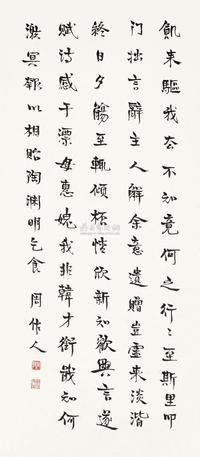 飢来驅我去不知竟何之行〻至斯里叩
门拙言辭主人解余意遺贈豈虚来谈谐
終日夕觴至輒傾桮情欣新知歡興言遂
赋诗感子漂母惠媿我非韓才銜戢知何
谢冥報以相貽陶渊明乞食 周作人